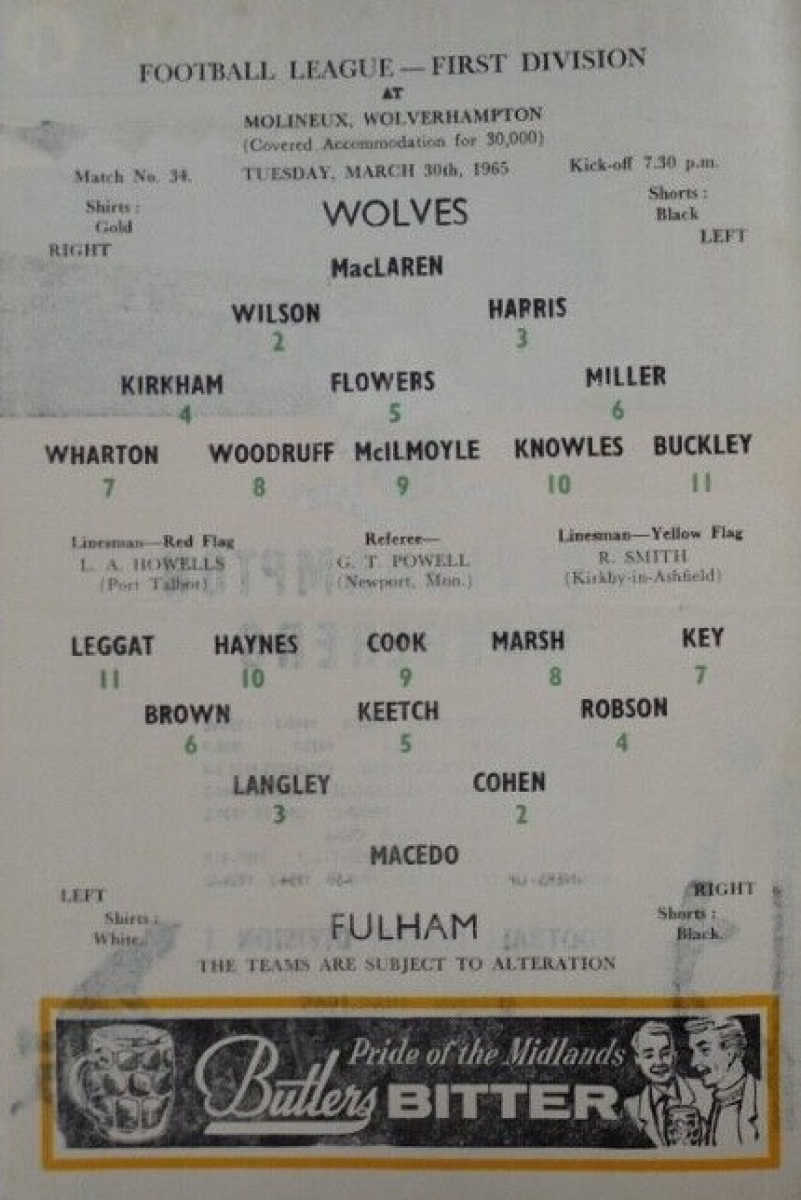 FOOTBALL LEAGUE — FIRST DIVISION
AT
MOLINEUX, WOLVERHAMPTON
(Covered Accommodation for 30,000)
Match No. 34. TUESDAY, MARCH 30th, 1965 Kick-off 7.30 p.m.
Shirts : WOLVES Shorts :
Gold Black
RIGHT LEFT
MacLAREN
WILSON HARRIS
2 3
KIRKHAM FLOWERS MILLER
4 5 6
WHARTON WOODRUFF McILMOYLE KNOWLES BUCKLEY
7 8 9 10 11
Linesman—Red Flag Referee— Linesman—Yellow Flag
L. A. HOWELLS G. T. POWELL R. SMITH
(Port Talbot) (Newport, Mon.) (Kirkby-in-Ashfield)
LEGGAT HAYNES COOK MARSH KEY
11 10 9 8 7
BROWN KEETCH ROBSON
6 5 4
LANGLEY COHEN
3 2
MACEDO
LEFT RIGHT
Shirts : FULHAM Shorts :
White. Black.
THE TEAMS ARE SUBJECT TO ALTERATION
Pride of the Midlands
Butlers BITTER